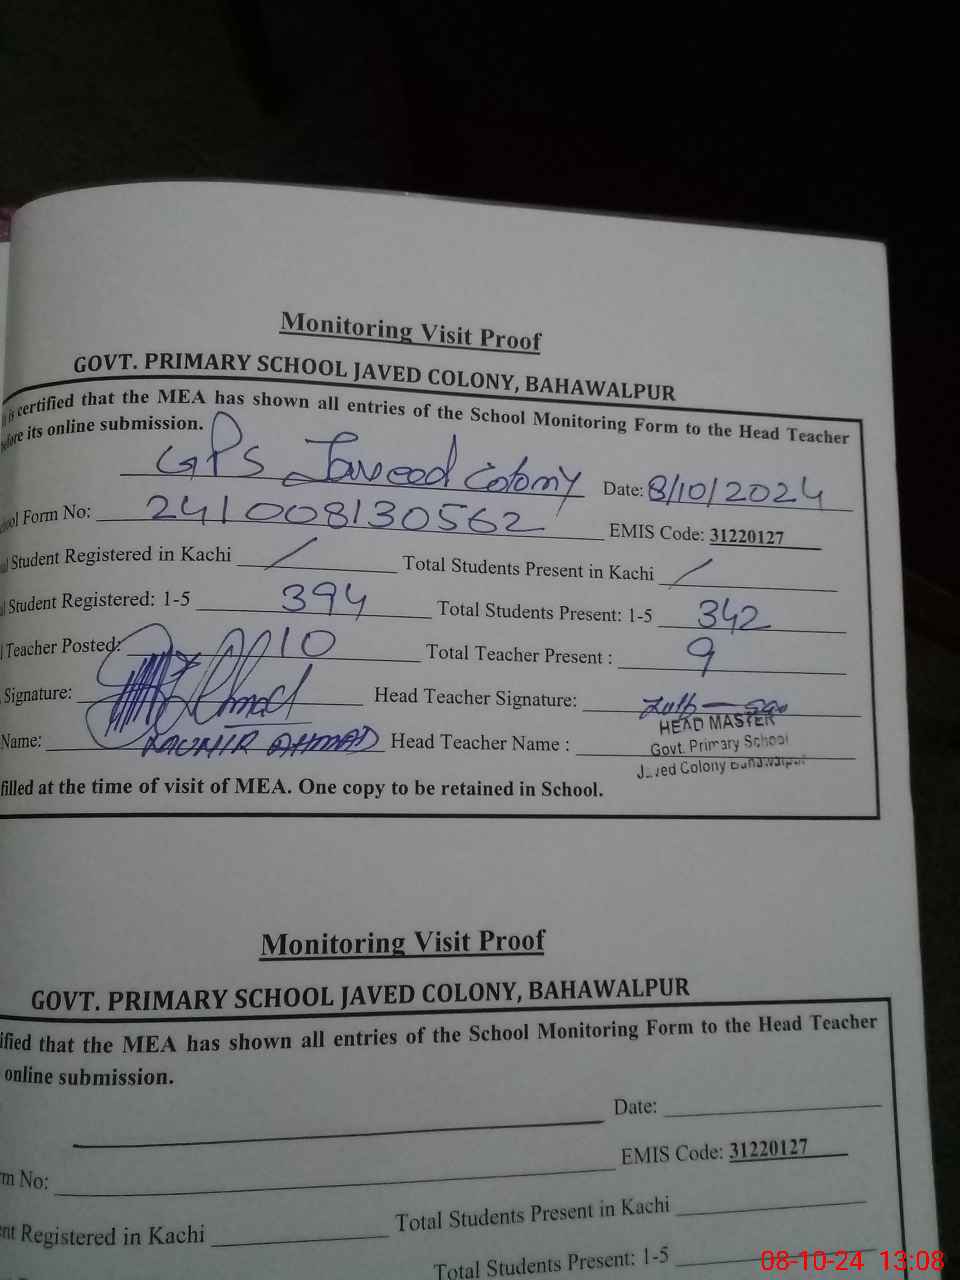 Monitoring Visit Proof
GOVT. PRIMARY SCHOOL JAVED COLONY, BAHAWALPUR
is certified that the MEA has shown all entries of the School Monitoring Form to the Head Teacher
before its online submission.
GPS Javeed Colony Date: 8/10/2024
School Form No: 241008130562 EMIS Code: 31220127
Student Registered in Kachi / Total Students Present in Kachi /
Student Registered: 1-5 394 Total Students Present: 1-5 342
Teacher Posted: 10 Total Teacher Present : 9
Signature: Ahmad Head Teacher Signature:
HEAD MASTER
Name: AHMAD Head Teacher Name : Govt. Primary School
Javed Colony Bahawalpur
filled at the time of visit of MEA. One copy to be retained in School.
Monitoring Visit Proof
GOVT. PRIMARY SCHOOL JAVED COLONY, BAHAWALPUR
ified that the MEA has shown all entries of the School Monitoring Form to the Head Teacher
online submission.
Date:
rm No: EMIS Code: 31220127
nt Registered in Kachi Total Students Present in Kachi
Total Students Present: 1-5
08-10-24 13:08